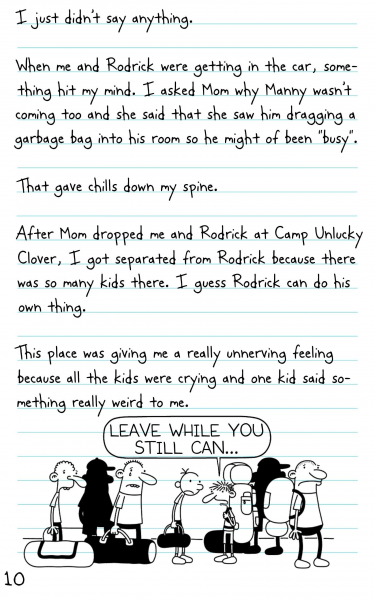 I just didn't say anything.
When me and Rodrick were getting in the car, some-
thing hit my mind. I asked Mom why Manny wasn't
coming too and she said that she saw him dragging a
garbage bag into his room so he might of been "busy".
That gave chills down my spine.
After Mom dropped me and Rodrick at Camp Unlucky
Clover, I got separated from Rodrick because there
was so many kids there. I guess Rodrick can do his
own thing.
This place was giving me a really unnerving feeling
because all the kids were crying and one kid said so-
mething really weird to me.
LEAVE WHILE YOU
STILL CAN...
10